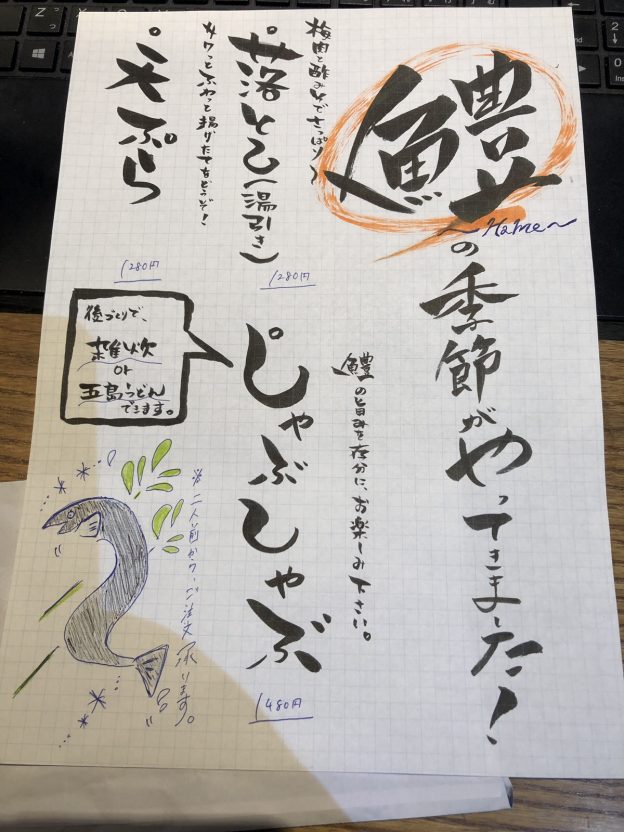 鱧〜Hame〜の季節がやってきました!
梅肉と酢みそでさっぱり〜
落とし(湯引き)
1280円
サクっとふわっと揚げたてをどうぞ!
天ぷら
1280円
鱧の旨みを存分に、お楽しみ下さい。
しゃぶしゃぶ
1480円
後づくりで、
雑炊
or
五島うどん
できます。
※二人前から、ご注文承ります。